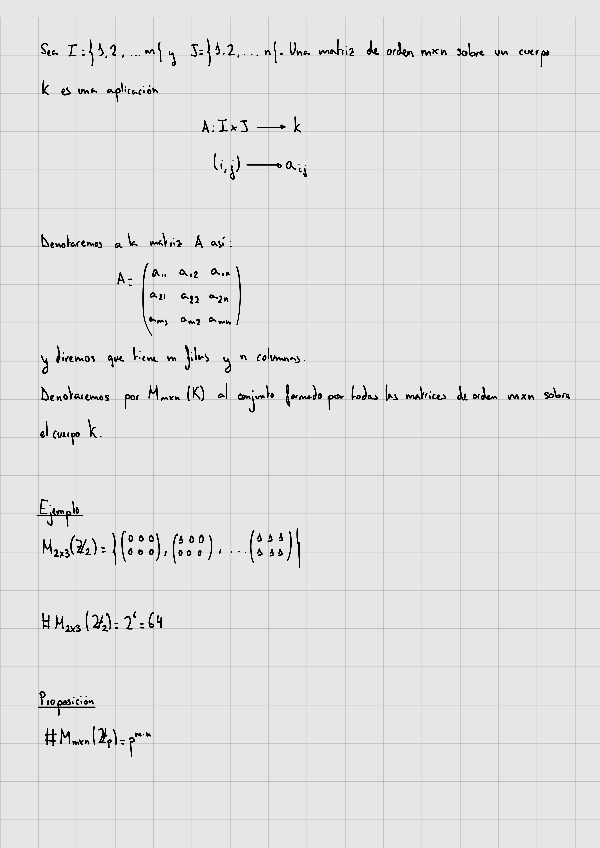 Sea I={1,2,...m} y J={1,2,...n}. Una matriz de orden m×n sobre un cuerpo
K es una aplicación
A: I×J ⟶ K
(i,j) ⟶ a_ij
Denotaremos a la matriz A así:
A= (a_11 a_12 a_1n
a_21 a_22 a_2n
a_m1 a_m2 a_mn)
y diremos que tiene m filas y n columnas.
Denotaremos por M_m×n (K) al conjunto formado por todas las matrices de orden m×n sobre
el cuerpo K.
Ejemplo
M_2×3(ℤ_2)={(0 0 0 / 0 0 0), (1 0 0 / 0 0 0), ... (1 1 1 / 1 1 1)}
#M_2×3(ℤ_2)=2^6=64
Proposición
#M_m×n(ℤ_p)=p^m·n